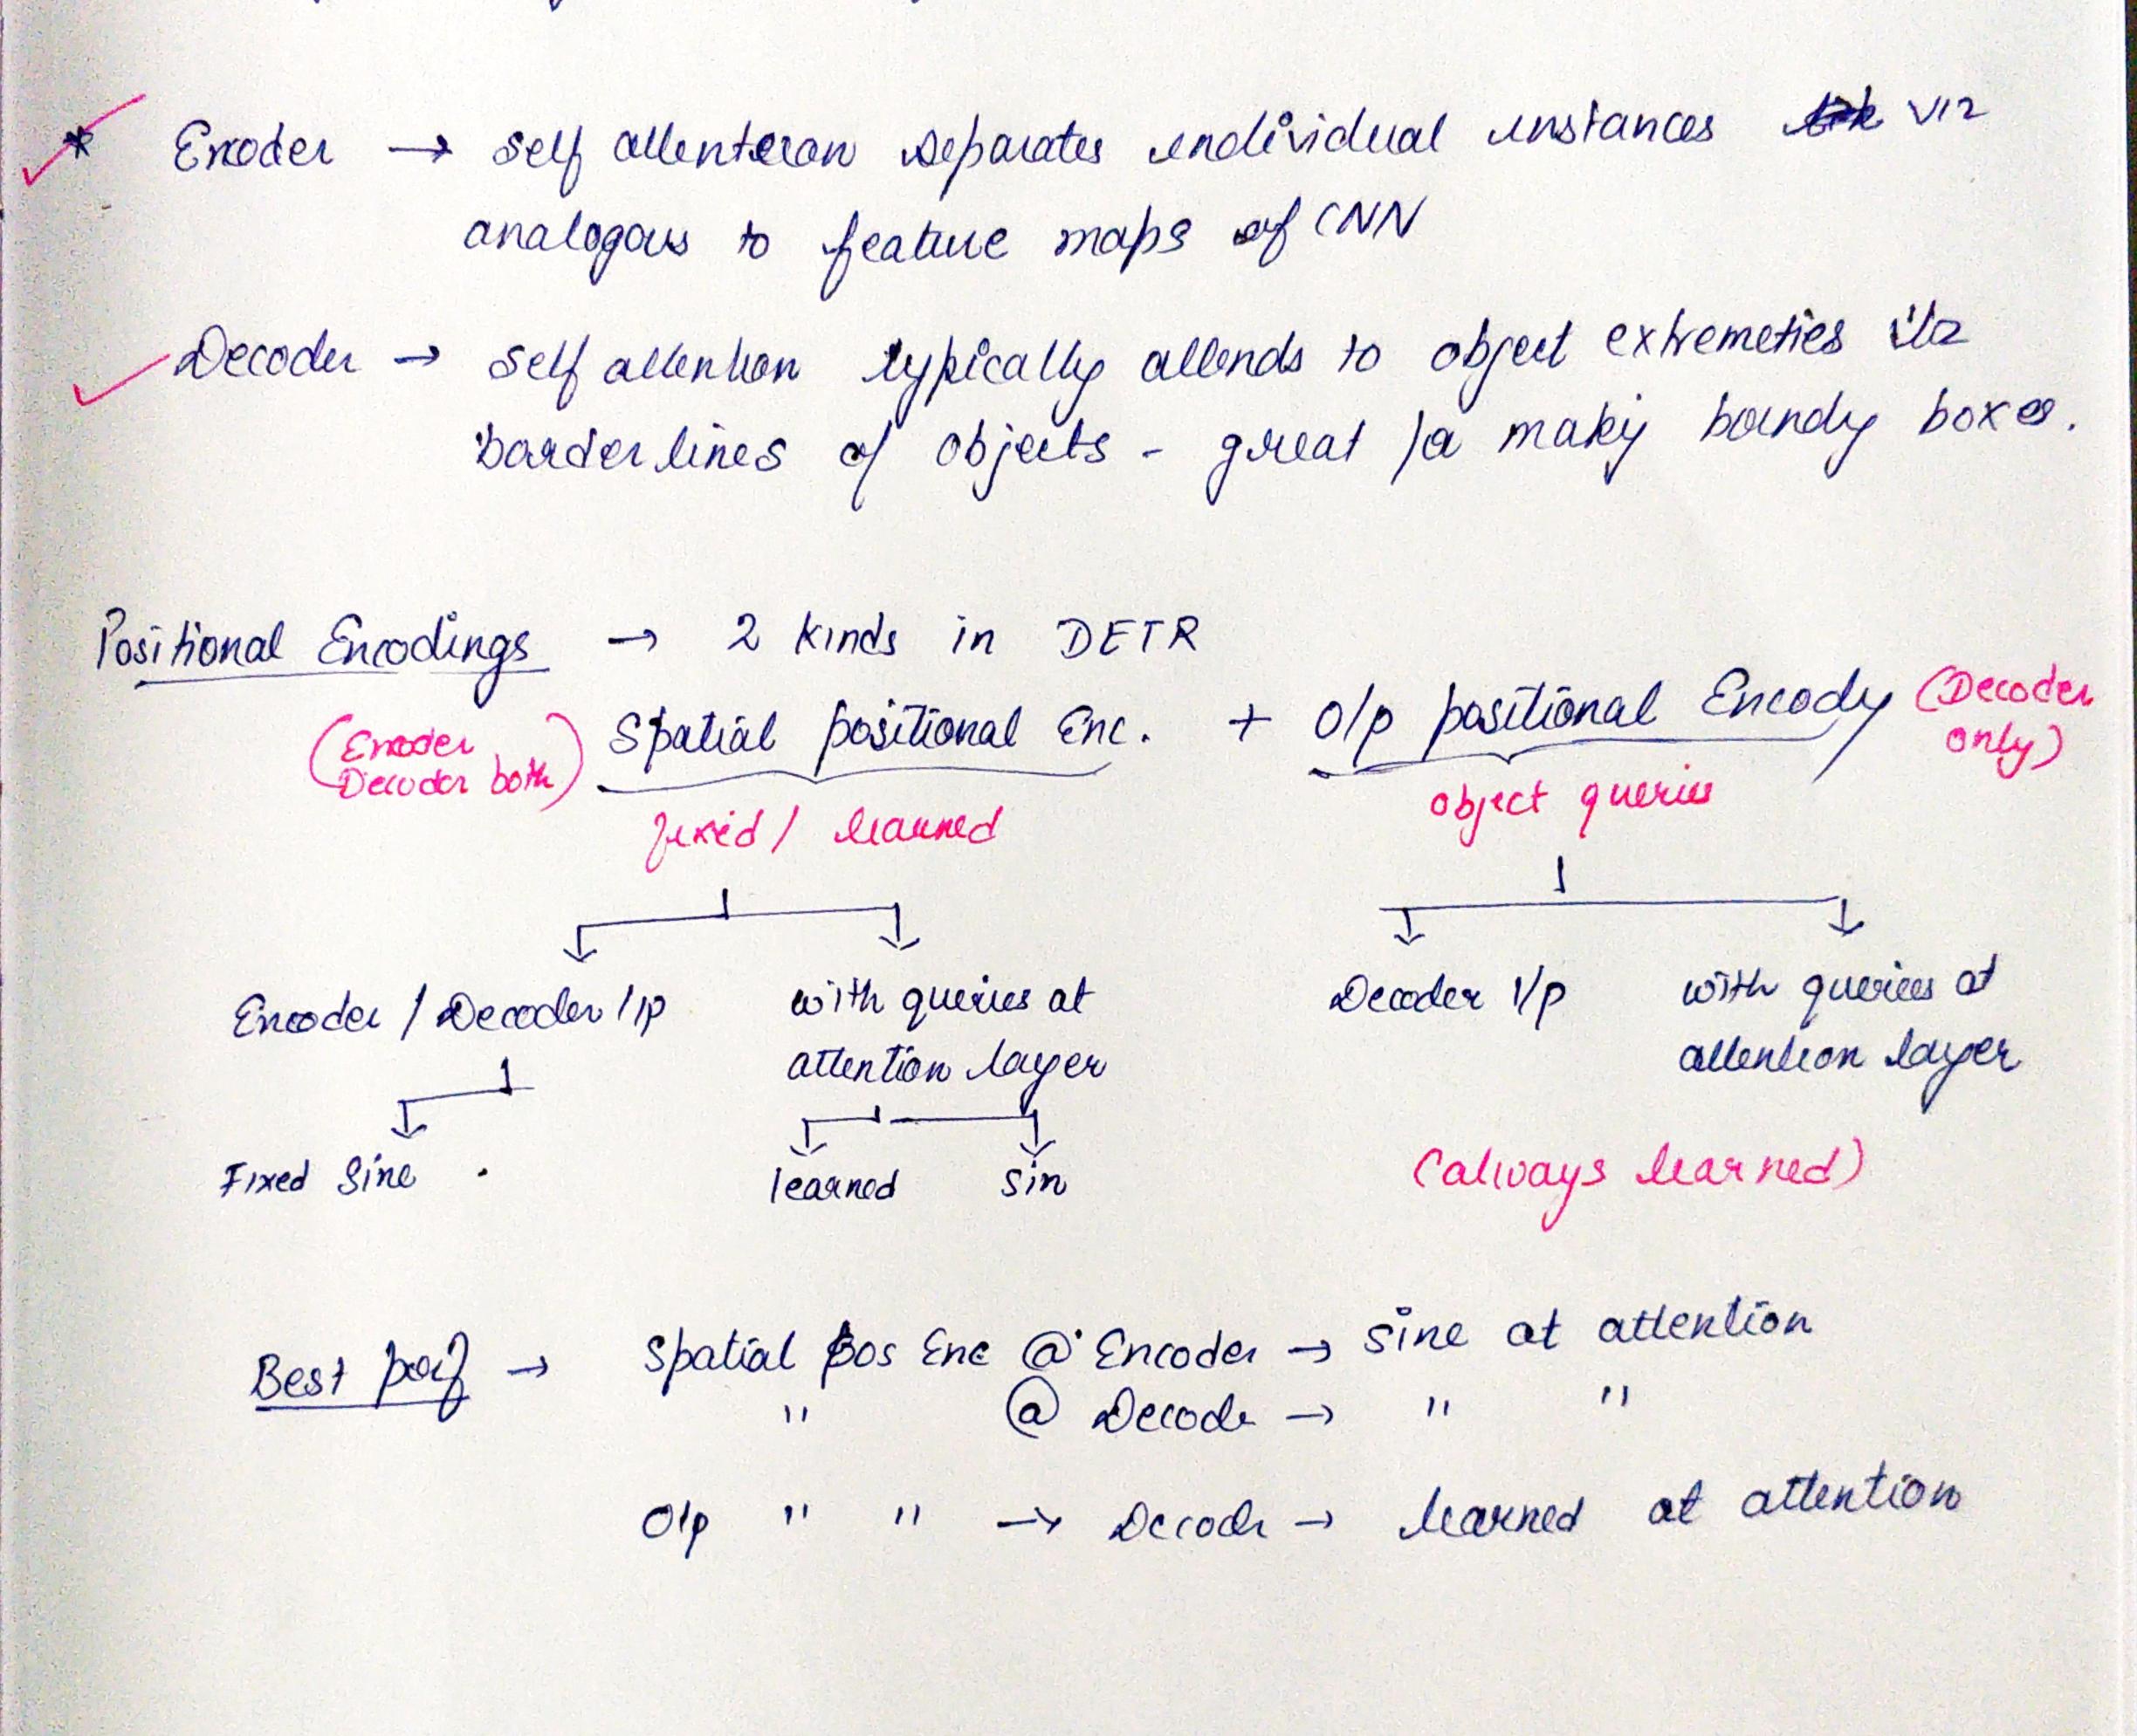 * Encoder → self attention separates individual instances viz
analogous to feature maps of CNN
Decoder → self attention typically attends to object extremeties viz
border lines of objects - great for making bounding boxes.
Positional Encodings → 2 kinds in DETR
(Encoder Decoder both) Spatial positional Enc. + O/p positional Encoding (Decoder only)
fixed / learned
object queries
Encoder / Decoder I/p
with queries at
attention layer
Decoder I/p
with queries at
attention layer
Fixed Sine .
learned sin
(always learned)
Best perf → Spatial Pos Enc @ Encoder → sine at attention
" @ Decoder → " "
O/p " " → Decoder → learned at attention